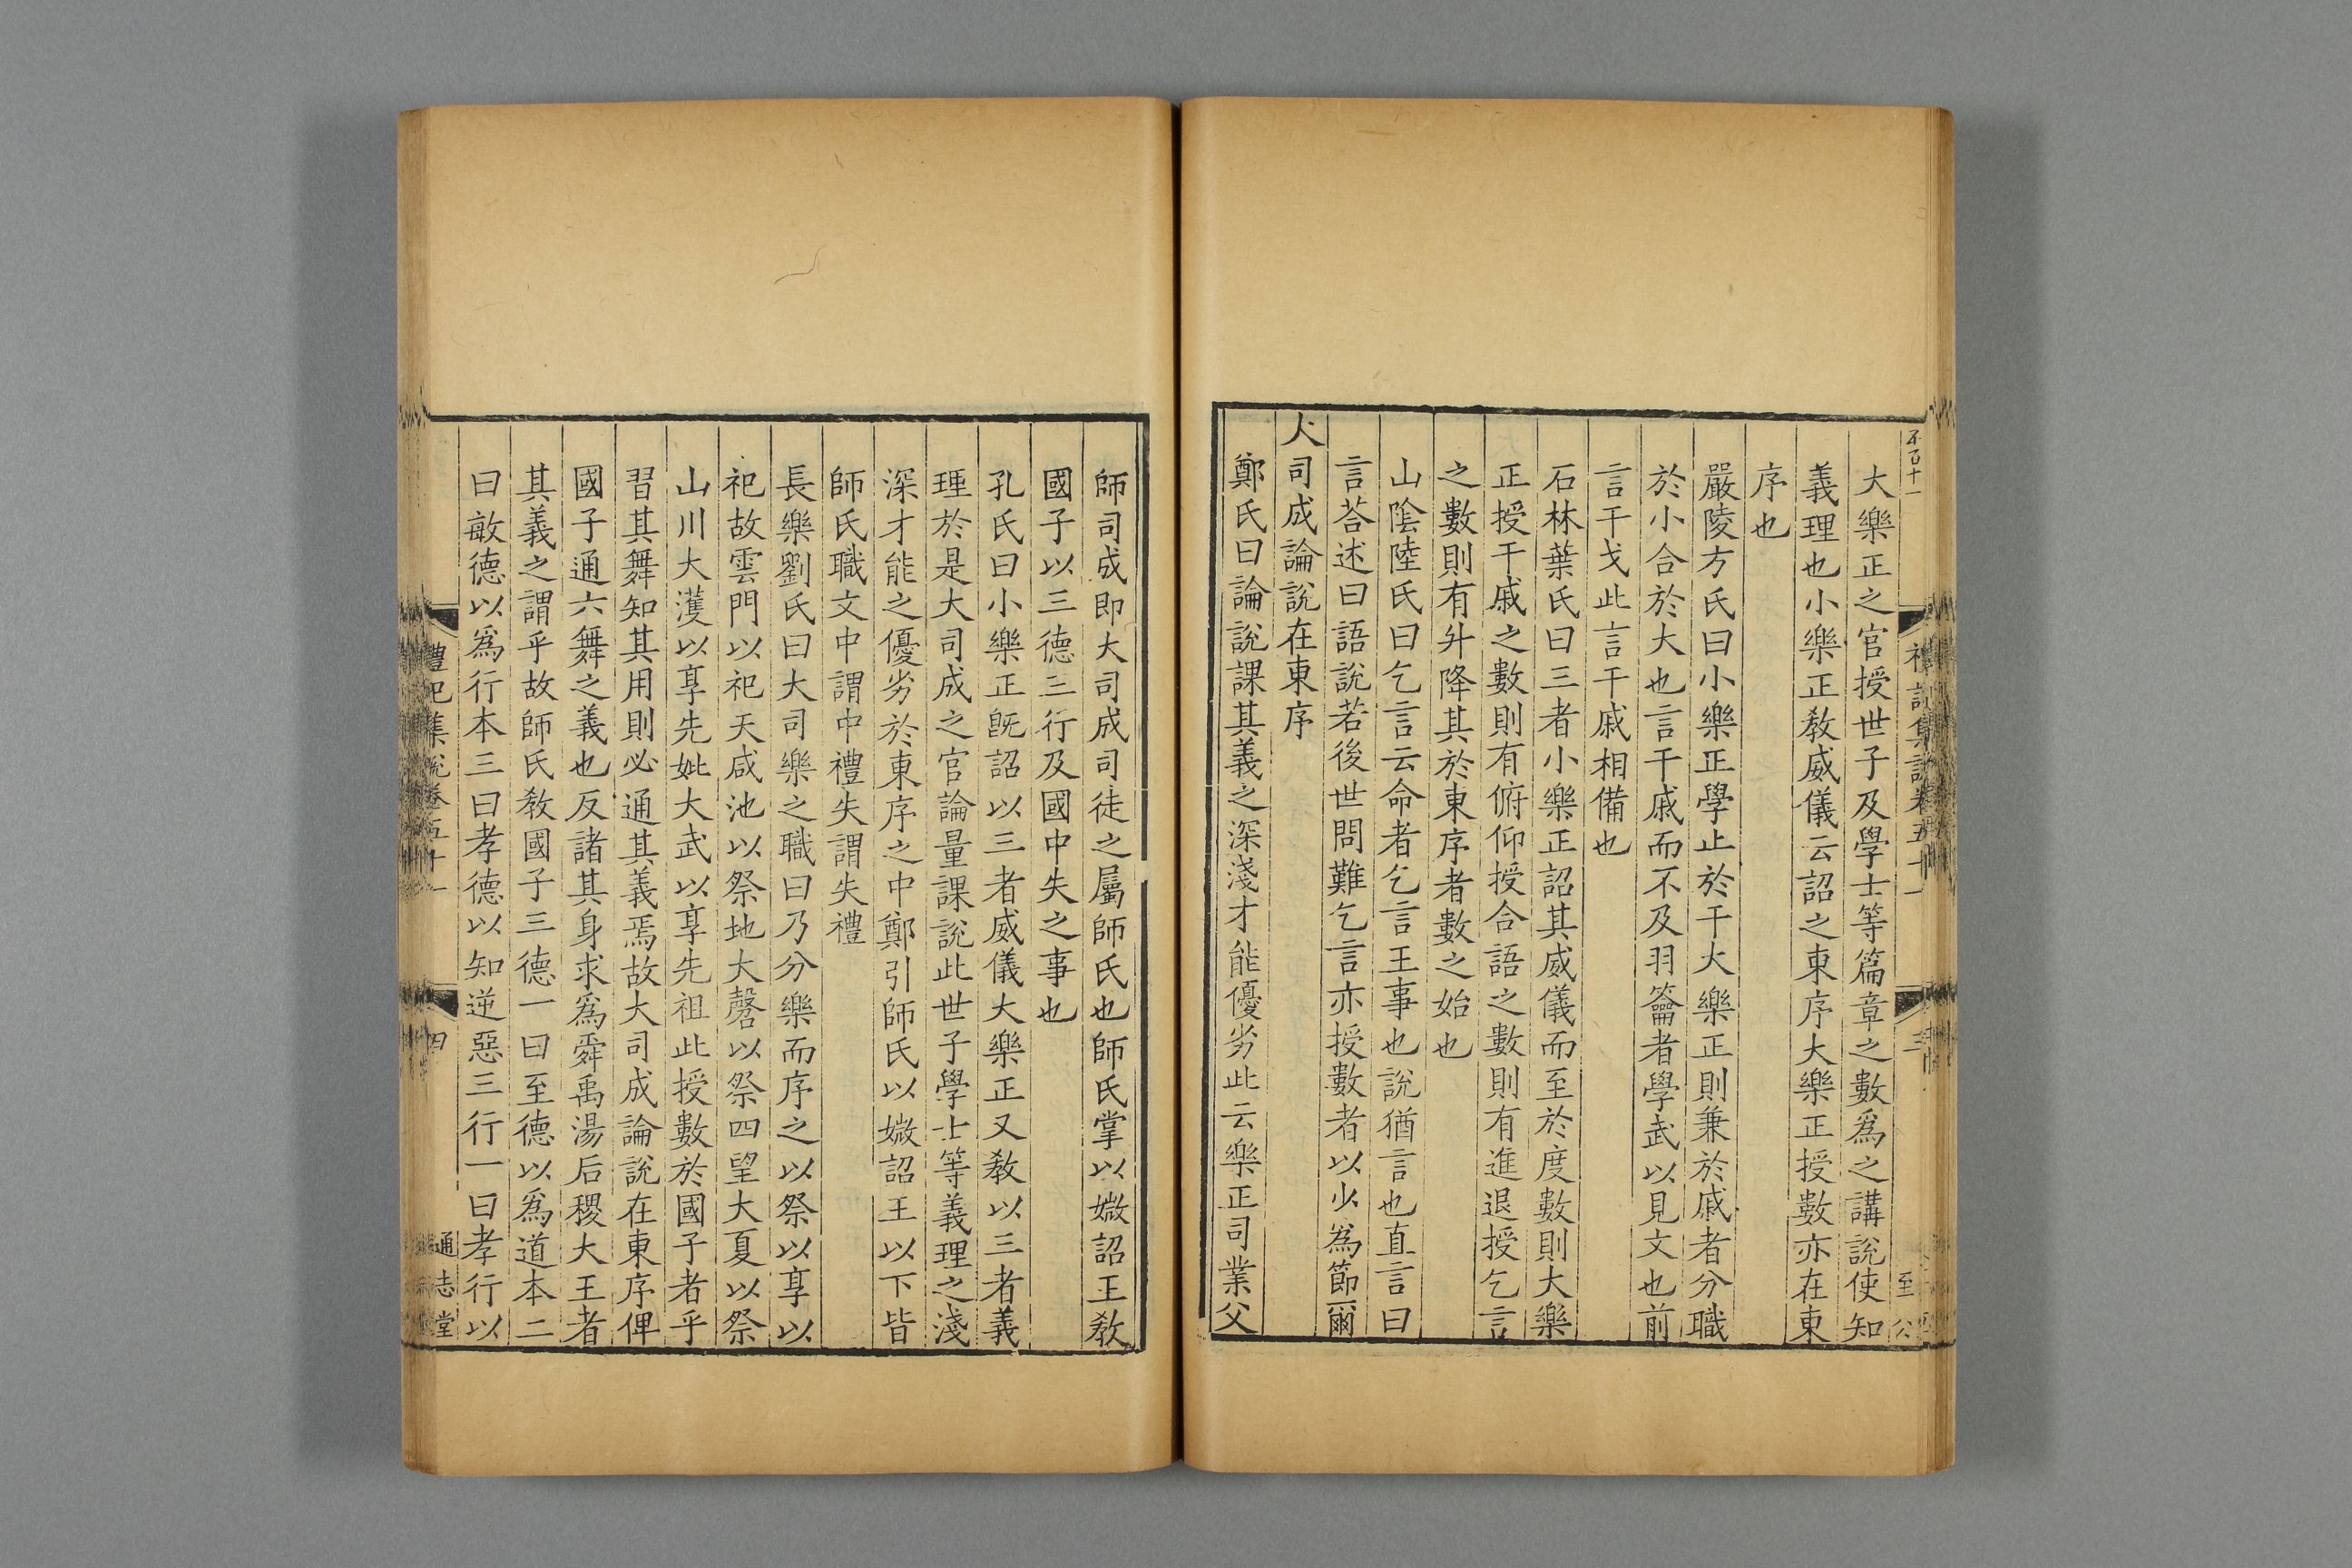 大樂正之官授世子及學士等篇章之數爲之講說使知
義理也小樂正敎威儀云詔之東序大樂正授數亦在東
序也
嚴陵方氏曰小樂正學止於干大樂正則兼於戚者分職
於小合於大也言干戚而不及羽籥者學武以見文也前
言干戈此言干戚相備也
石林葉氏曰三者小樂正詔其威儀而至於度數則大樂
正授干戚之數則有俯仰授合語之數則有進退授乞言
之數則有升降其於東序者數之始也
山陰陸氏曰乞言云命者乞言王事也說猶言也直言曰
言荅述曰語說若後世問難乞言亦授數者以少爲節爾
大司成論說在東序
鄭氏曰論說課其義之深淺才能優劣此云樂正司業父
師司成即大司成司徒之屬師氏也師氏掌以媺詔王敎
國子以三德三行及國中失之事也
孔氏曰小樂正旣詔以三者威儀大樂正又敎以三者義
理於是大司成之官論量課說此世子學士等義理之淺
深才能之優劣於東序之中鄭引師氏以媺詔王以下皆
師氏職文中謂中禮失謂失禮
長樂劉氏曰大司樂之職曰乃分樂而序之以祭以享以
祀故雲門以祀天咸池以祭地大磬以祭四望大夏以祭
山川大濩以享先妣大武以享先祖此授數於國子者乎
習其舞知其用則必通其義焉故大司成論說在東序俾
國子通六舞之義也反諸其身求爲舜禹湯后稷大王者
其義之謂乎故師氏敎國子三德一曰至德以爲道本二
曰敏德以爲行本三曰孝德以知逆惡三行一曰孝行以
禮記集說卷五十一
四
通志堂